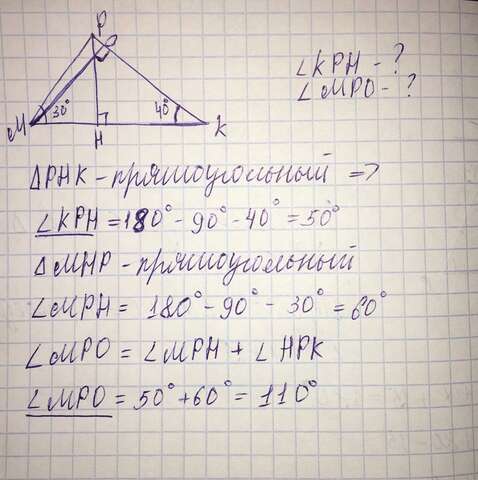 P
O
M
30°
H
40°
K
∠KPH - ?
∠MPO - ?
ΔPHK - прямоугольный =>
∠KPH = 180° - 90° - 40° = 50°
ΔMHP - прямоугольный
∠MPH = 180° - 90° - 30° = 60°
∠MPO = ∠MPH + ∠HPK
∠MPO = 50° + 60° = 110°